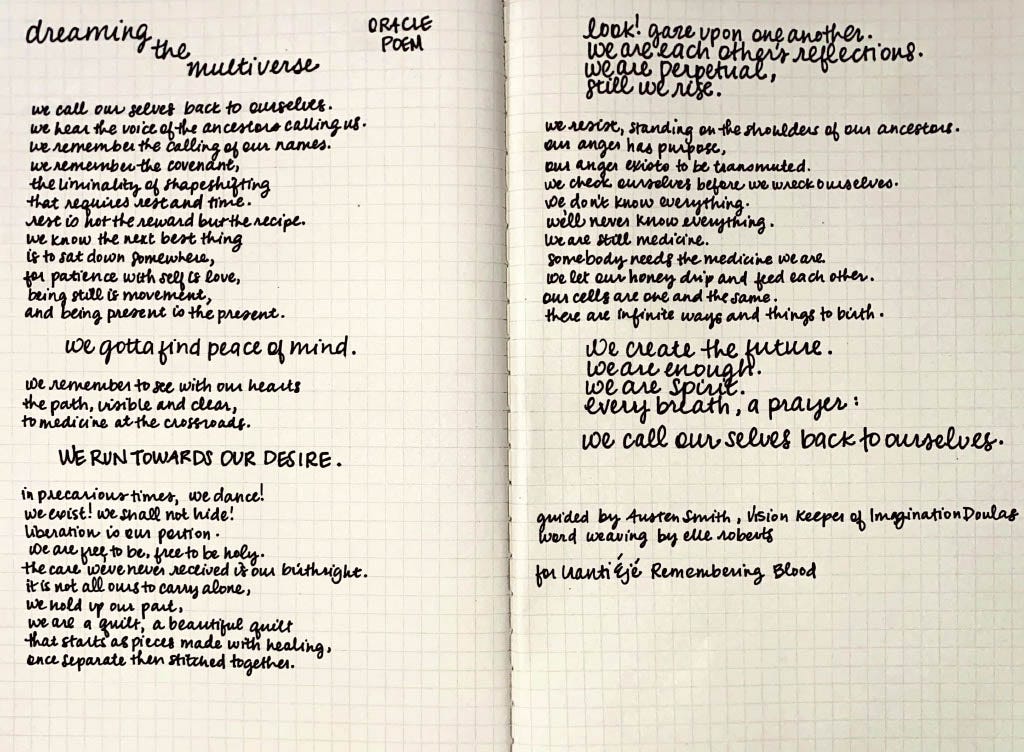 dreaming
the
multiverse
ORACLE
POEM
we call our selves back to ourselves.
we hear the voice of the ancestors calling us.
we remember the calling of our names.
we remember the covenant,
the liminality of shapeshifting
that requires rest and time.
rest is not the reward but the recipe.
we know the next best thing
is to sat down somewhere,
for patience with self is love,
being still is movement,
and being present is the present.
we gotta find peace of mind.
we remember to see with our hearts
the path, visible and clear,
to medicine at the crossroads.
WE RUN TOWARDS OUR DESIRE.
in precarious times, we dance!
we exist! we shall not hide!
liberation is our portion.
we are free to be, free to be holy.
the care we've never received is our birthright.
it is not all ours to carry alone,
we hold up our part,
we are a quilt, a beautiful quilt
that starts as pieces made with healing,
once separate then stitched together.
look! gaze upon one another.
we are each other's reflections.
we are perpetual,
still we rise.
we resist, standing on the shoulders of our ancestors.
our anger has purpose,
our anger exists to be transmuted.
we check ourselves before we wreck ourselves.
we don't know everything.
we'll never know everything.
we are still medicine.
somebody needs the medicine we are.
we let our honey drip and feed each other.
our cells are one and the same.
there are infinite ways and things to birth.
we create the future.
we are enough.
we are spirit.
every breath, a prayer:
we call our selves back to ourselves.
guided by Austen Smith, Vision Keeper of Imagination Doulas
word weaving by elle roberts
for Éjé Remembering Blood